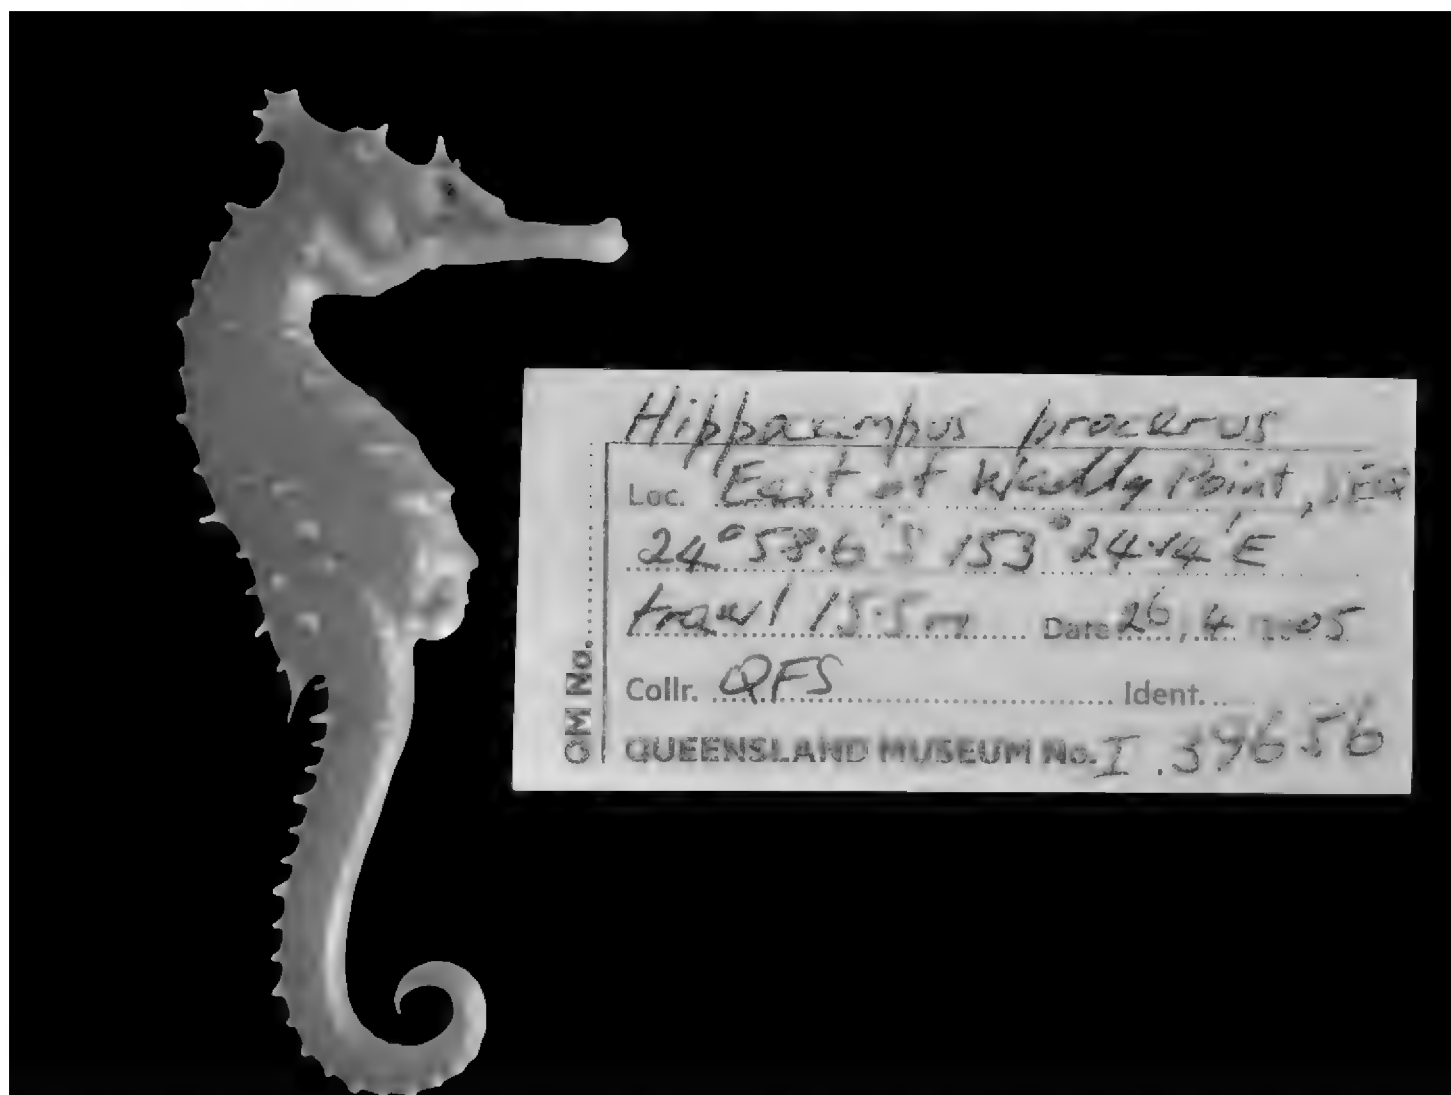 Hippocampus procerus
Loc. East of Waddy Point, SEQ
24°58.6'S 153°24.14'E
trawl 15.5m Date 26, 4 05
Collr. QFS Ident.
QM No.
QUEENSLAND MUSEUM No. I.37656